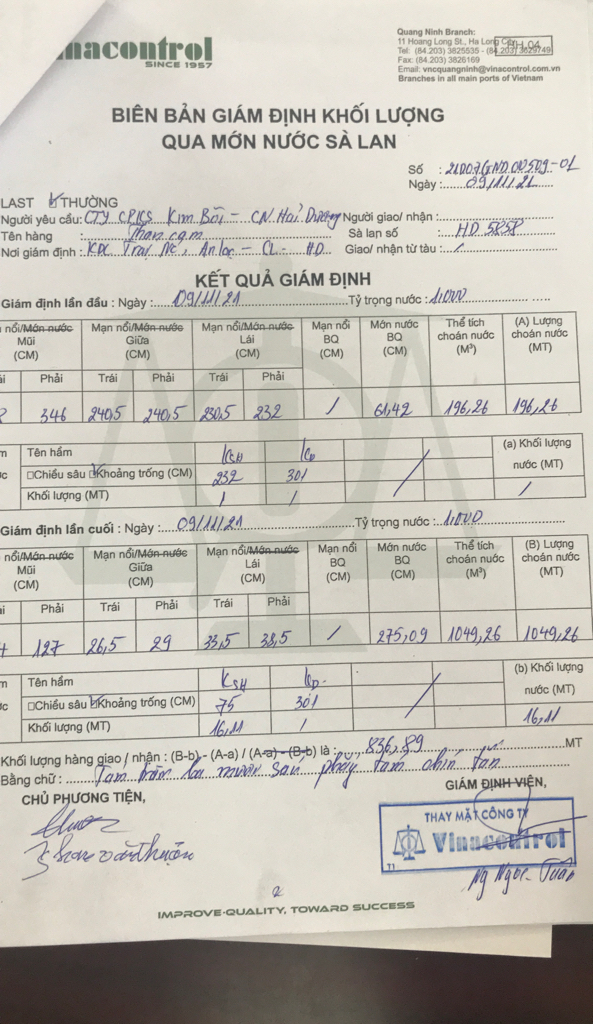 nacontrol
SINCE 1957
Quang Ninh Branch:
11 Hoang Long St., Ha Long City
Tel: (84.203) 3825535 - (84.203) 3629749
Fax: (84.203) 3826169
Email: vncquangninh@vinacontrol.com.vn
Branches in all main ports of Vietnam
BIÊN BẢN GIÁM ĐỊNH KHỐI LƯỢNG
QUA MỚN NƯỚC SÀ LAN
Số : 21D07GND00509-01
Ngày :.....09/11/21
LAST THƯỜNG
Người yêu cầu: CTY CPKCS Kim Bôi - CN Hải Dương Người giao/ nhận :
Tên hàng : Than cám Sà lan số : HD 5858
Nơi giám định : KDC An Lạc - CL - HD Giao/ nhận từ tàu : /
KẾT QUẢ GIÁM ĐỊNH
Giám định lần đầu : Ngày : 09/11/21 Tỷ trọng nước : 1,000
nổi/Món nước Mũi (CM) Mạn nổi/Món nước Giữa (CM) Mạn nổi/Món nước Lái (CM) Mạn nổi BQ (CM) Món nước BQ (CM) Thể tích choán nước (M³) (A) Lượng choán nước (MT)
Phải Trái Phải Trái Phải
346 240,5 240,5 230,5 232 / 61,42 196,26 196,26
Tên hầm KSH (a) Khối lượng nước (MT)
□Chiều sâu Khoảng trống (CM) 232 301 /
Khối lượng (MT) / / /
Giám định lần cuối : Ngày : 09/11/21 Tỷ trọng nước : 1,000
nổi/Món nước Mũi (CM) Mạn nổi/Món nước Giữa (CM) Mạn nổi/Món nước Lái (CM) Mạn nổi BQ (CM) Món nước BQ (CM) Thể tích choán nước (M³) (B) Lượng choán nước (MT)
Phải Trái Phải Trái Phải
127 26,5 29 33,5 38,5 / 275,09 1049,26 1049,26
Tên hầm KSH (b) Khối lượng nước (MT)
□Chiều sâu Khoảng trống (CM) 75 301 /
Khối lượng (MT) 16,11 / 16,11
Khối lượng hàng giao / nhận : (B-b) - (A-a) / (A-a) - (B-b) là : 836,89 MT
Bằng chữ : Tám trăm ba mươi sáu phẩy tám chín tấn
CHỦ PHƯƠNG TIỆN, GIÁM ĐỊNH VIÊN,
THAY MẶT CÔNG TY
Vinacontrol
71
Ng Ngọc Tuấn
2
IMPROVE-QUALITY, TOWARD SUCCESS